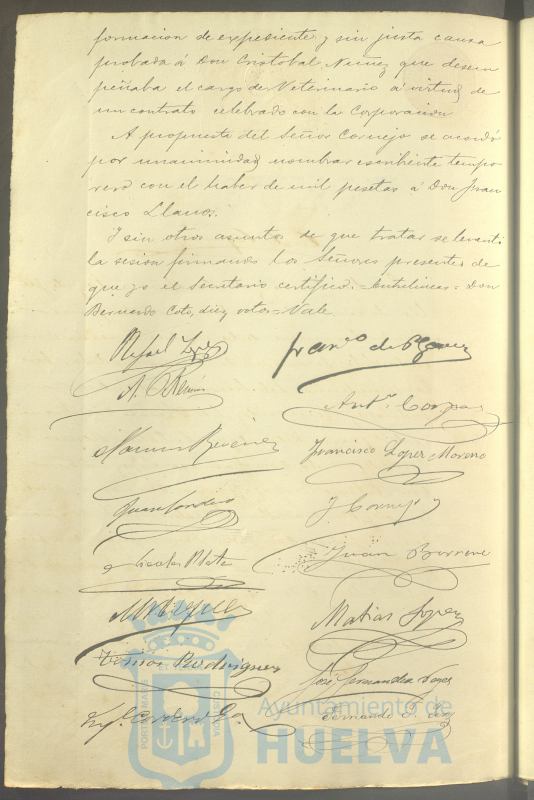 formacion de expediente y sin justa causa
probada á Don Cristobal Nuñez que desem
peñaba el cargo de Veterinario á virtud de
un contrato celebrado con la Corporacion
A propuesta del Señor Cornejo se acordó
por unanimidad nombrar escribiente tempo
rero con el haber de mil pesetas á Don Fran
cisco Llanos.
Y sin otros asuntos de que tratar se levantó
la sesion firmando los Señores presentes de
que yo el Secretario certifico. = Entrelineas = Don
Bernardo Coto, diez votos = Vale
Rafael Lopez
Franco de P.
A.
Antº
Francisco Lopez Moreno
Juan Cordero
J. Cornejo
Juan Borrero
Matias Lopez
Rodriguez
José Fernandez
Cordero
Fernando
PORTUS MARIS
ET TERRÆ CUSTODIA
Ayuntamiento de
HUELVA